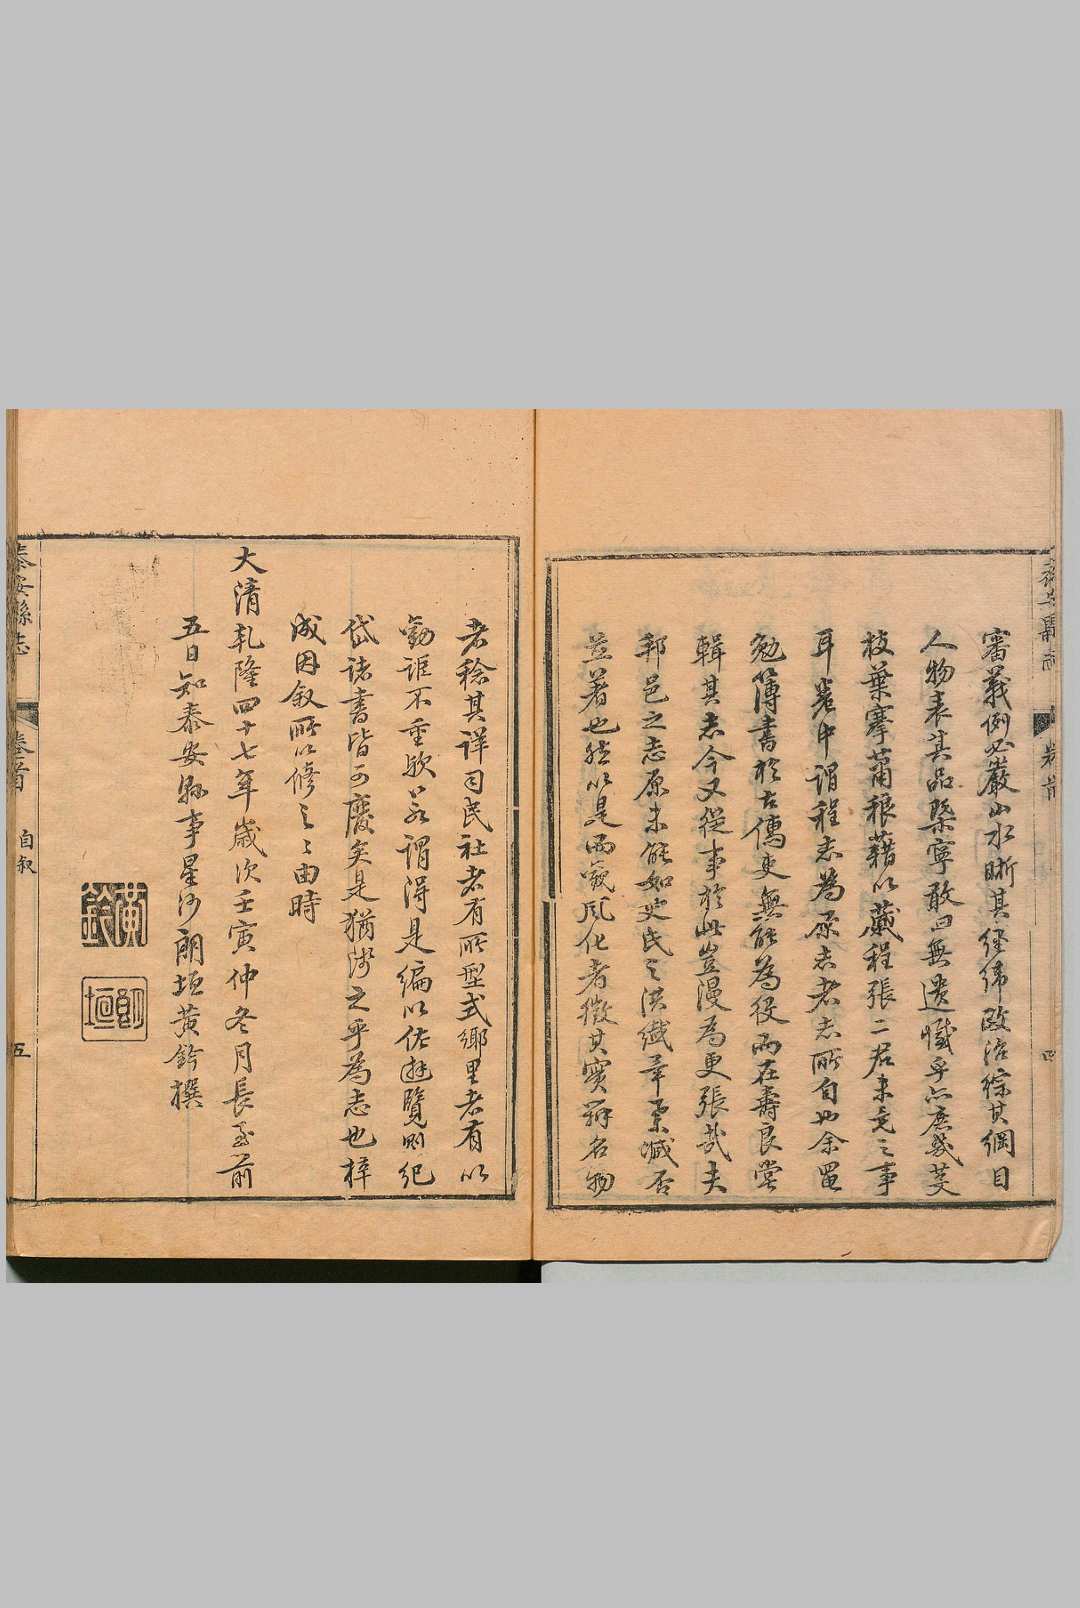 泰安縣志
卷首
四
審義例必嚴山水晰其經緯政治綜其綱目
人物表其品槩寧敢曰無遺憾乎亦庶幾芟
枝葉搴蕭稂藉以蕆程張二君未竟之事
耳卷中謂程志為原志者志所自也余黽
勉簿書於古傳吏無能為役而在壽良嘗
輯其志今又從事於此豈漫為更張哉夫
邦邑之志原未能如史氏之洪纖畢彙臧否
並著也然以是而覘風化者徵其實辨名物
者稔其詳司民社者有所型式鄉里者有以
勸誰不重歟若謂得是編以佐遊覽則紀
岱諸書皆可廢矣是猶淺之乎為志也梓
成因叙所以修之之由時
大清乾隆四十七年歲次壬寅仲冬月長至前
五日知泰安縣事星沙朗垣黃鈐撰
黃鈐
朗垣
泰安縣志
卷首
自叙
五